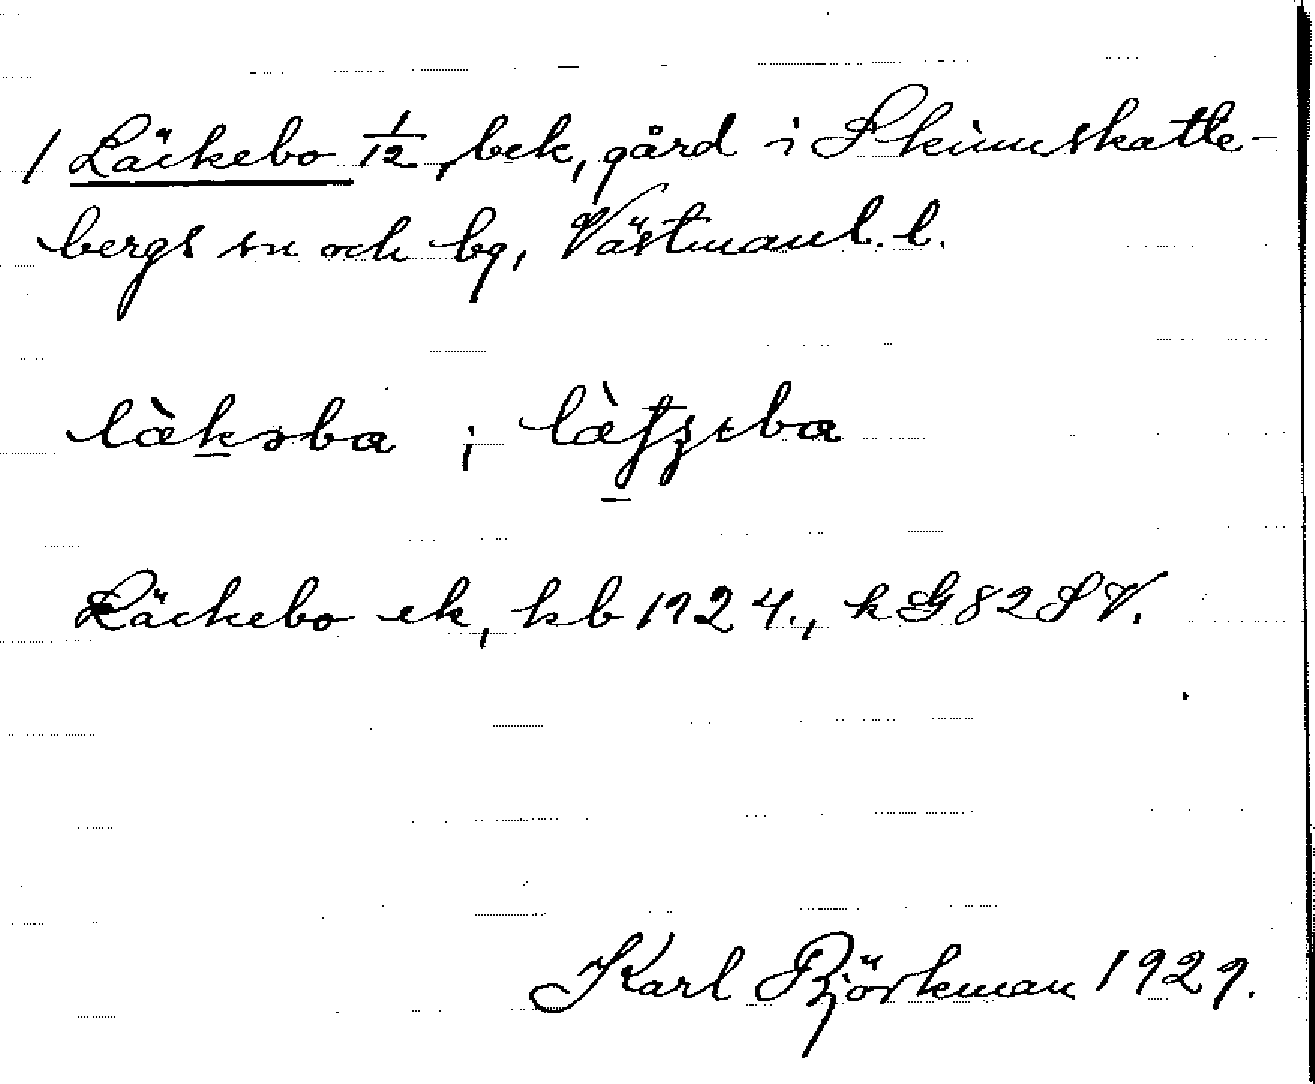 1 Läckebo 1/12, bek, gård i Skinnskatte-
bergs sn och bg, Västmanl. l.
læ̀kəba ; læ̀
Läckebo ek, hb 1924., kG82SV.
Karl Björkman 1929.